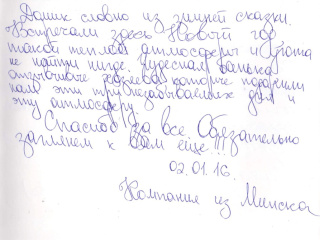 Домик словно из зимней сказки.
Встречали здесь Новый год
такой теплой атмосферы и уюта
не найти нигде. Чудесная банька
отличные хозяева которые подарили
нам эти три незабываемых дня и
эту атмосферу.
Спасибо за все. Обязательно
заглянем к вам еще!!!
02.01.16.
Компания из Минска